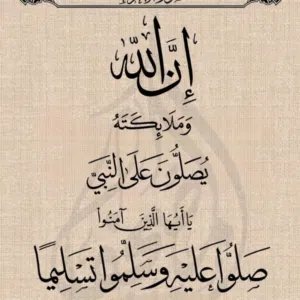 إِنَّ اللَّهَ
وَمَلَائِكَتَهُ
يُصَلُّونَ عَلَى النَّبِيِّ
يَا أَيُّهَا الَّذِينَ آمَنُوا
صَلُّوا عَلَيْهِ وَسَلِّمُوا تَسْلِيمًا